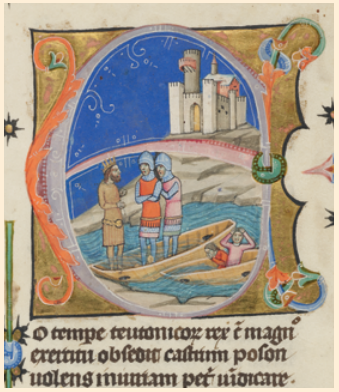 EO tempe teutonicoꝝ rex c̄ magno
exercitu obsedit castrum poson
uolens iniuriam pet͛ uīdicare